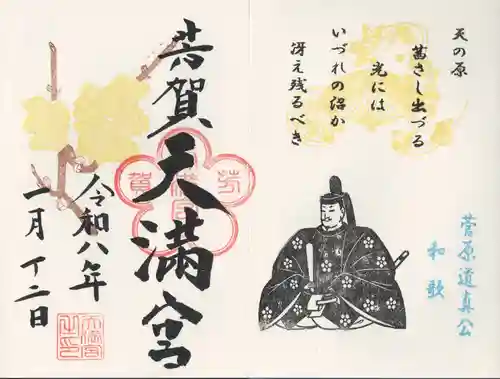 天の原
茜さし出づる
光には
いづれの沼か
冴え残るべき
菅原道真公
和歌
芳賀天満宮
芳賀
令和八年
二月十二日